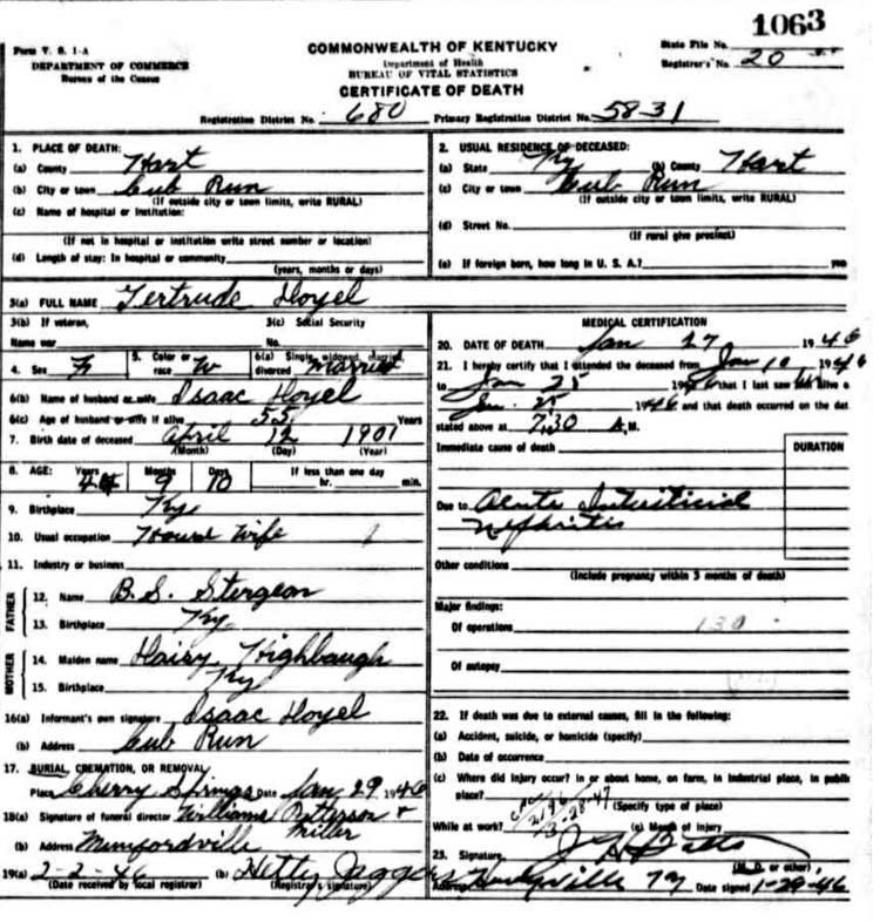 1063
Form V. S. 1-A
DEPARTMENT OF COMMERCE
Bureau of the Census
COMMONWEALTH OF KENTUCKY
Department of Health
BUREAU OF VITAL STATISTICS
CERTIFICATE OF DEATH
State File No.
Registrar's No. 20
Registration District No. 680 Primary Registration District No. 5831
1. PLACE OF DEATH:
(a) County Hart
(b) City or town Cub Run
(If outside city or town limits, write RURAL)
(c) Name of hospital or institution:
(If not in hospital or institution write street number or location)
(d) Length of stay: In hospital or community
(years, months or days)
2. USUAL RESIDENCE OF DECEASED:
(a) State Ky (b) County Hart
(c) City or town Cub Run
(If outside city or town limits, write RURAL)
(d) Street No.
(If rural give precinct)
(e) If foreign born, how long in U. S. A.?
3(a) FULL NAME Gertrude Hoyel
3(b) If veteran,
Name war
3(c) Social Security
No.
4. Sex F 5. Color or race W 6(a) Single, widowed, married, divorced married
6(b) Name of husband or wife Isaac Hoyel
6(c) Age of husband or wife if alive 55 Years
7. Birth date of deceased April 12 1901
(Month) (Day) (Year)
8. AGE: Years 44 Months 9 Days 10 If less than one day
hr. min.
9. Birthplace Ky
10. Usual occupation House Wife
11. Industry or business
FATHER
12. Name B. S. Sturgeon
13. Birthplace Ky.
MOTHER
14. Maiden name Daisy Highbaugh
15. Birthplace Ky
16(a) Informant's own signature Isaac Hoyel
(b) Address Cub Run
17. BURIAL, CREMATION, OR REMOVAL
Place Cherry Springs Date Jan 29 1946
18(a) Signature of funeral director Williams Patterson &
Miller
(b) Address Munfordville
19(a) 2-2-46 (b) Hetty Jaggers
(Date received by local registrar) (Registrar's signature)
MEDICAL CERTIFICATION
20. DATE OF DEATH Jan 27 1946
21. I hereby certify that I attended the deceased from Jan 10 1946
to Jan 25 1946 that I last saw alive o
Jan. 25 1946 and that death occurred on the dat
stated above at 7:30 A.M.
Immediate cause of death DURATION
Due to Acute Intersticial
Nephritis
Other conditions
(Include pregnancy within 3 months of death)
Major findings:
Of operations 130
Of autopsy
22. If death was due to external causes, fill in the following:
(a) Accident, suicide, or homicide (specify)
(b) Date of occurrence
(c) Where did injury occur? In or about home, on farm, in industrial place, in public
place?
(Specify type of place)
2196
3-28-47
While at work? (e) Means of injury
23. Signature
(M. D. or other)
Address Hardyville Ky Date signed 1-29-46